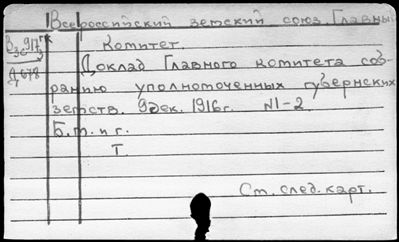 Всероссийский земский союз. Главный
Комитет.
Доклад Главного комитета соб-
ранию уполномоченных губернских
земств. 9 дек. 1916 г. №1-2
Б. м. и г.
Т.
См. след. карт.